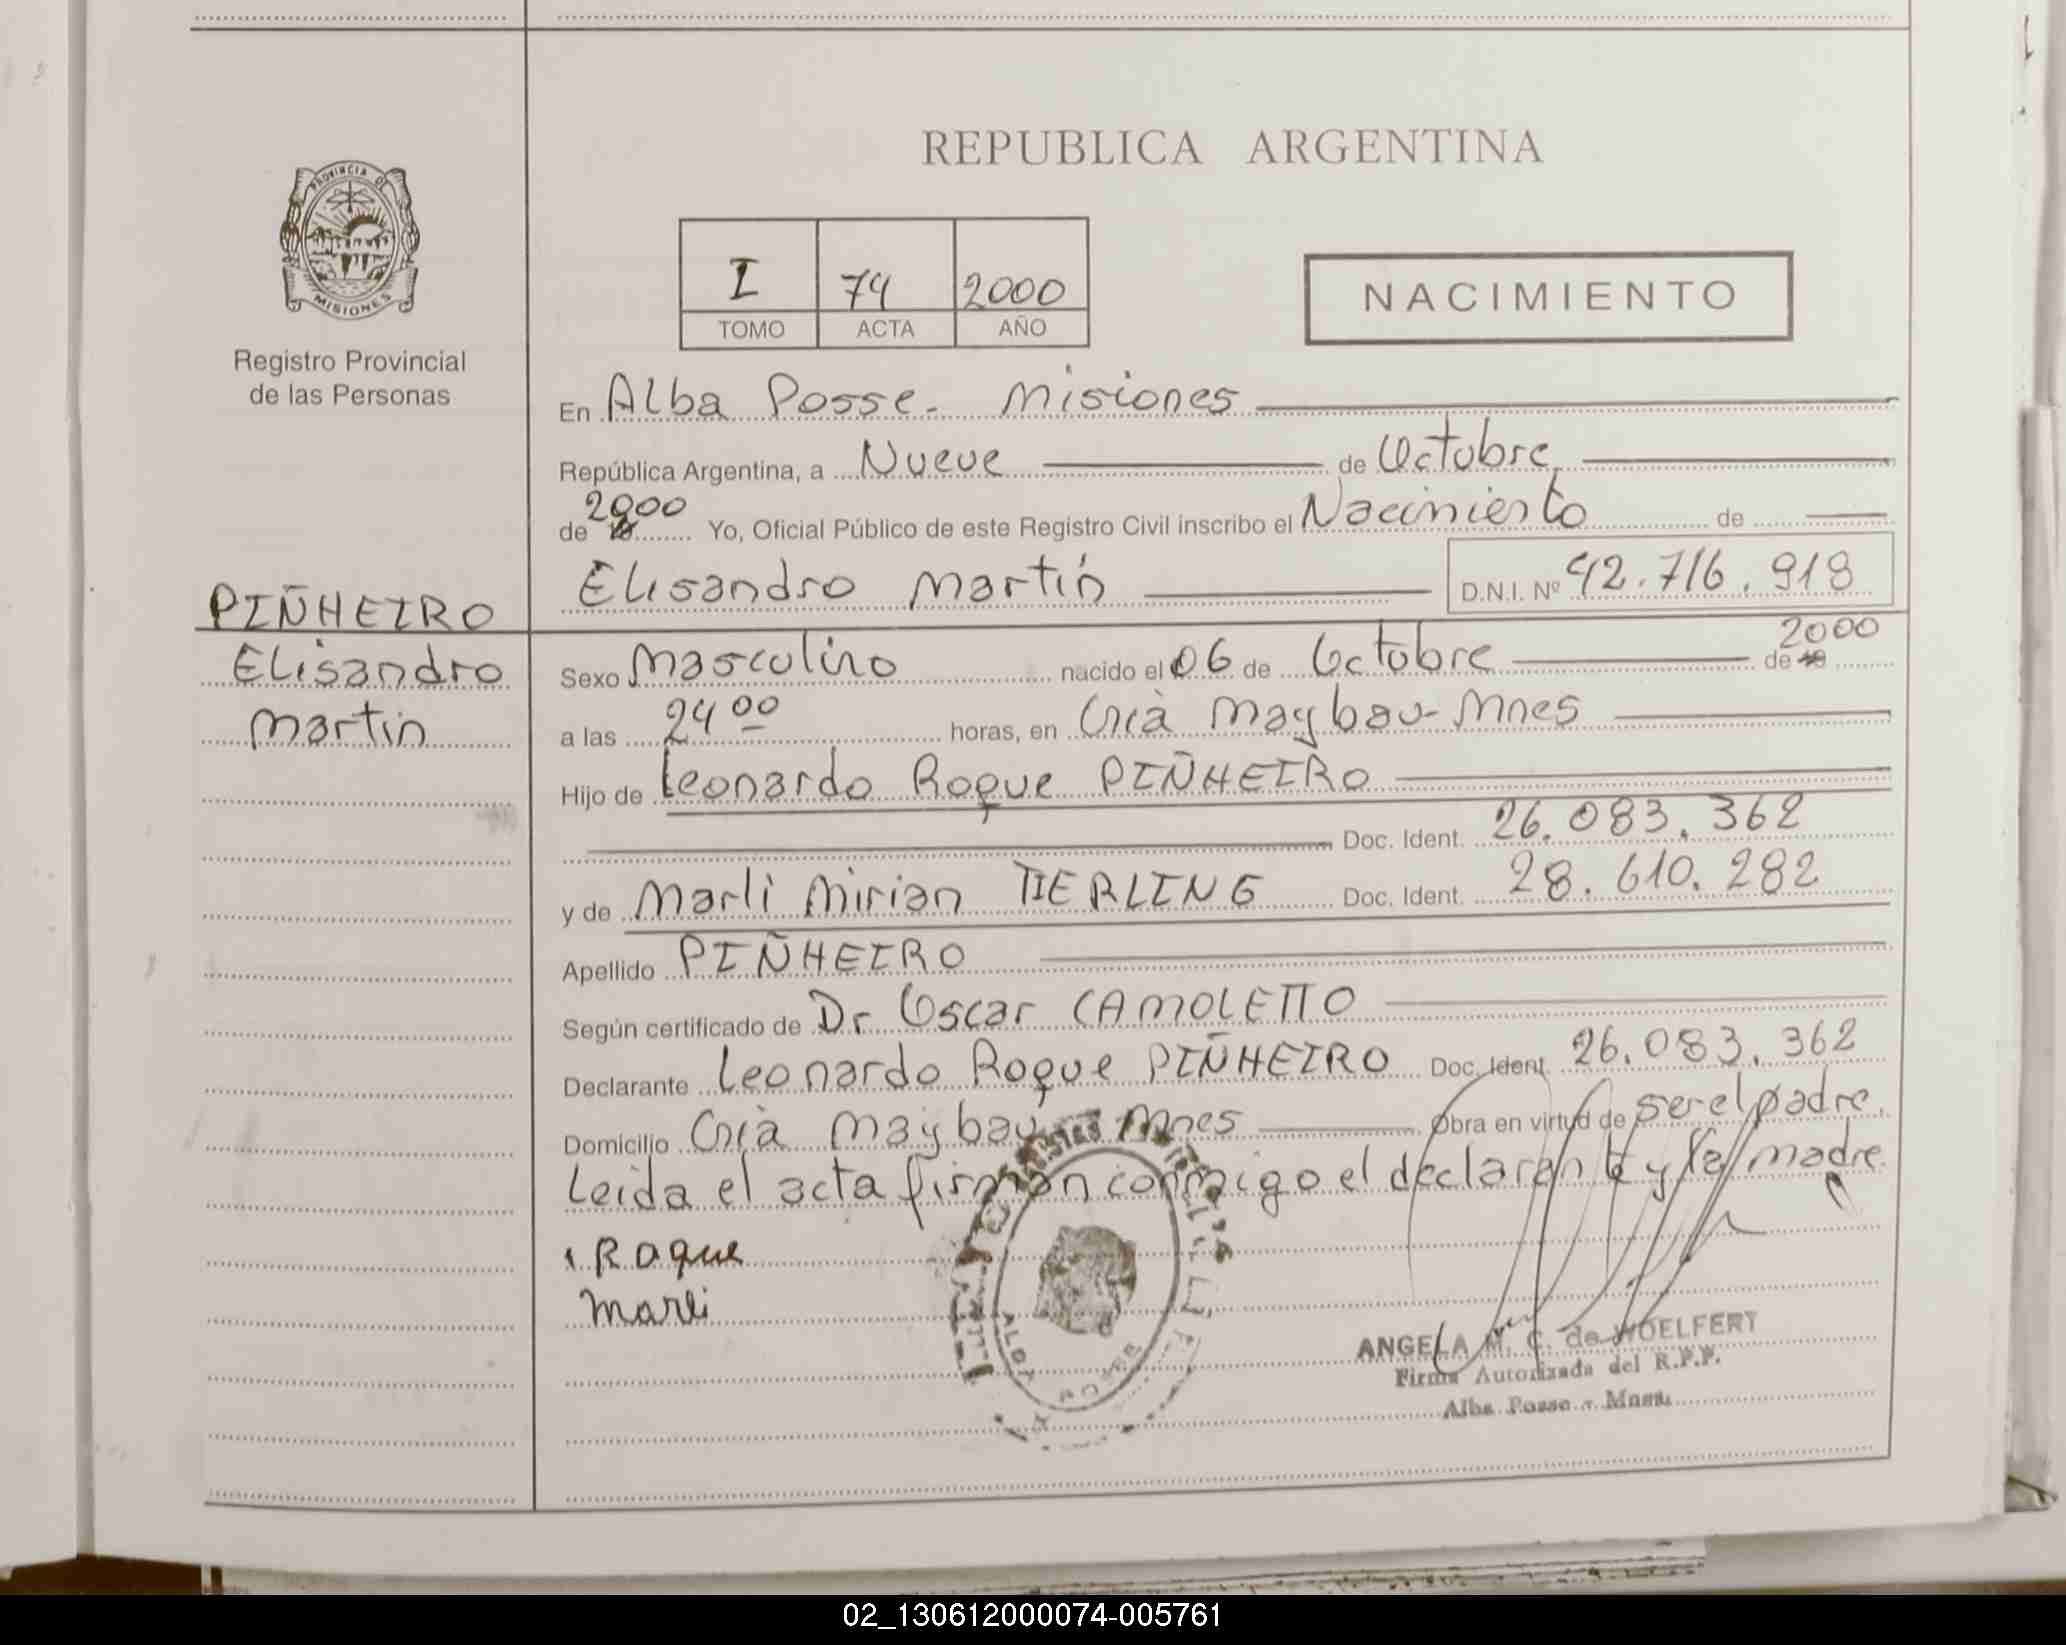 REPUBLICA ARGENTINA
PROVINCIA DE
MISIONES
Registro Provincial
de las Personas
I 74 2000
TOMO ACTA AÑO
NACIMIENTO
En Alba Posse - Misiones
República Argentina, a Nueve de Octubre,
de 2000 Yo, Oficial Público de este Registro Civil inscribo el Nacimiento de
Elisandro Martín D.N.I. Nº 42.716.918
PIÑHEIRO
Elisandro
Martín
Sexo Masculino nacido el 06 de Octubre de 2000
a las 24 00 horas, en Cnia Maybau - Mnes
Hijo de Leonardo Roque PIÑHEIRO
Doc. Ident. 26.083.362
y de Marli Mirian TIERLING Doc. Ident. 28.610.282
Apellido PIÑHEIRO
Según certificado de Dr Oscar CAMOLETTO
Declarante Leonardo Roque PIÑHEIRO Doc. Ident. 26.083.362
Domicilio Cnia Maybau Mnes Obra en virtud de ser el padre.
Leida el acta firman conmigo el declarante y la madre.
Roque
Marli
ALBA POSSE
ANGELA M. C. de WOELFERT
Firma Autorizada del R.P.P.
Alba Posse - Mnes.
02_130612000074-005761